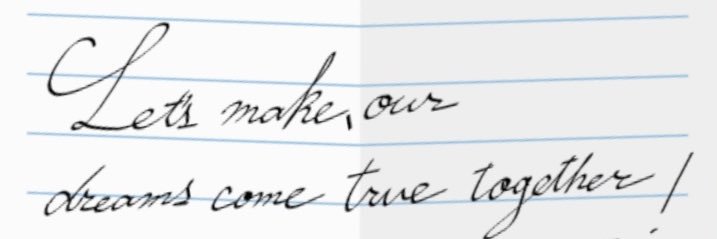 Let's make, our
dreams come true together!